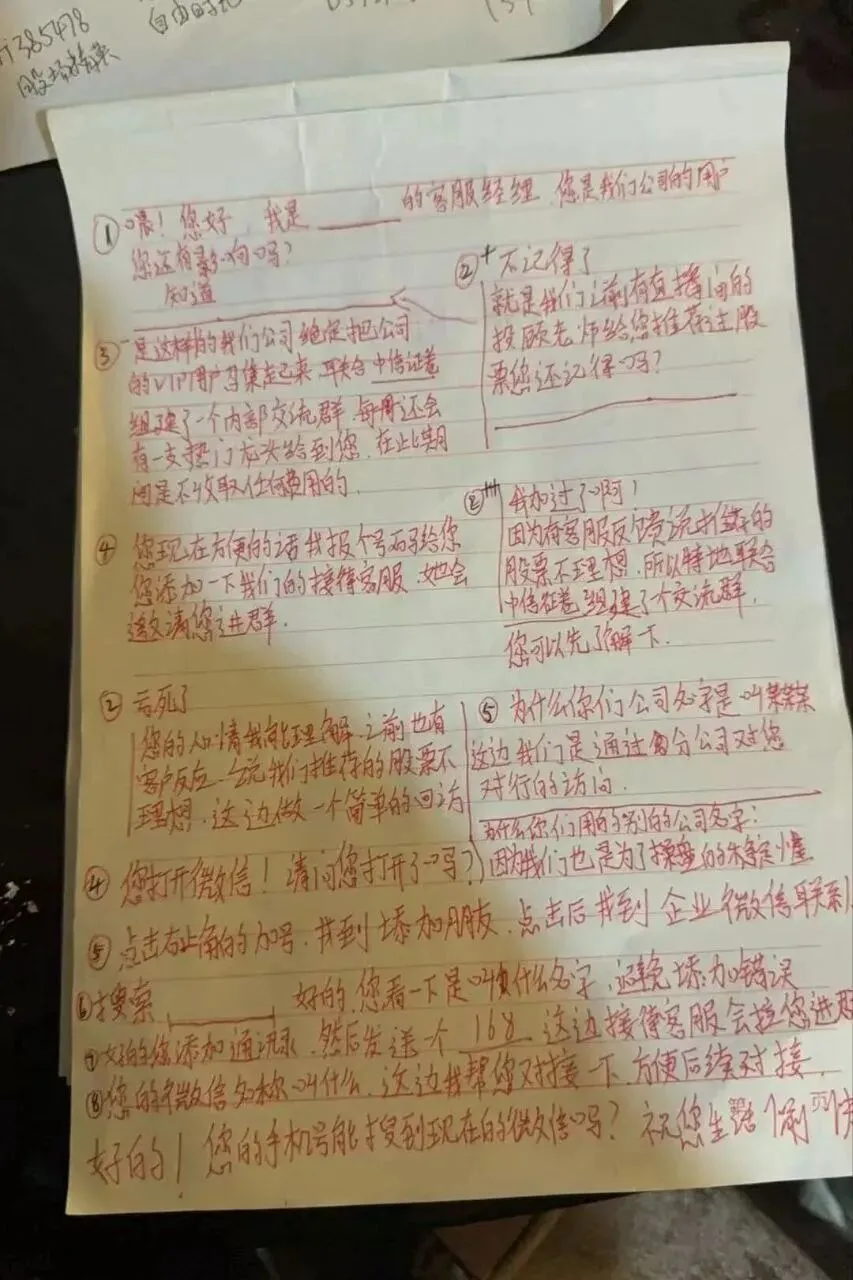 385478
自由时代
股市精英
①喂！您好，我是____的客服经理，您是我们公司的用户
您还有影响吗？
知道
②+ 不记得了
就是我们之前有直播间的
投顾老师给您推荐过股
票您还记得吗？
③ 是这样的我们公司绝定把公司
的VIP用户召集起来，联合中信证卷
组建了一个内部交流群，每周还会
有一支热门龙头给到您，在此期
间是不收取任何费用的，
②+++ 我加过了啊！
因为有客服反馈说推荐的
股票不理想，所以特地联合
中信征卷 组建了个交流群，
您可以先了解一下.
④ 您现在方便的话我报个号码给您
您添加一下我们的接待客服，她会
邀请您进群.
② 亏死了
您的心情我能理解，之前也有
客户反应，说我们推荐的股票不
理想，这边做一个简单的回访
⑤ 为什么你们公司名字是叫某某某
这边我们是通过分公司对您
对行的访问.
为什么你们用的别的公司名字：
因为我们也是为了操盘的稳定性
④ 您打开微信！请问您打开了吗？
⑤ 点击右上角的加号，找到添加朋友，点击后找到企业微信联系人
⑥搜索____ 好的，您看一下是叫什么名字，避免添加错误
⑦好的您添加通讯录，然后发送一个 168 这边接待客服会拉您进群
⑧您的微信名称叫什么，这边我帮您对接一下，方便后续对接，
好的！您的手机号能搜到现在的微信吗？祝您生活